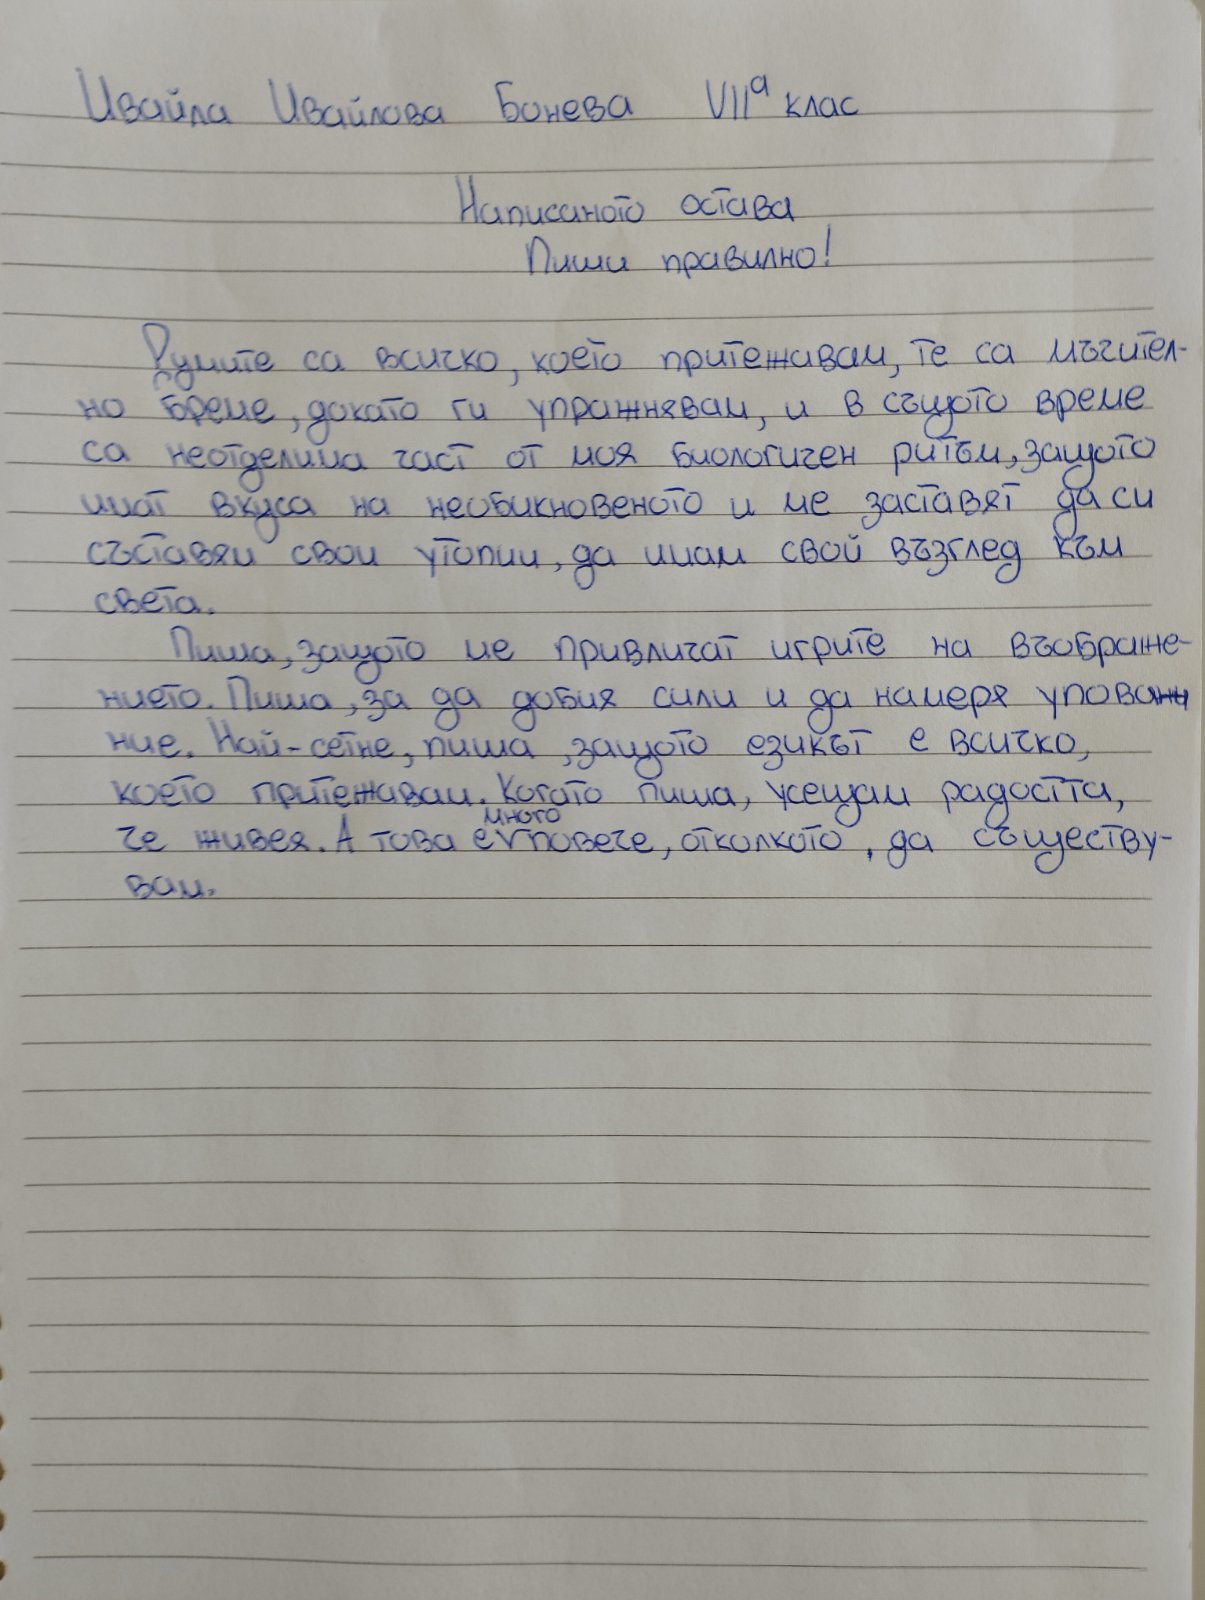 Ивайла Ивайлова Бонева VIIа клас
Написаното остава
Пиши правилно!
Думите са всичко, което притежавам, те са мъчител-
но бреме, докато ги упражнявам, и в същото време
са неотделима част от моя биологичен ритъм, защото
имат вкуса на необикновеното и ме заставят да си
съставям свои утопии, да имам свой възглед към
света.
Пиша, защото ме привличат игрите на въображе-
нието. Пиша, за да добия сили и да намеря упова
ние. Най-сетне, пиша, защото езикът е всичко,
което притежавам. Когато пиша, усещам радостта,
че живея. А това е много повече, отколкото, да съществу-
вам.